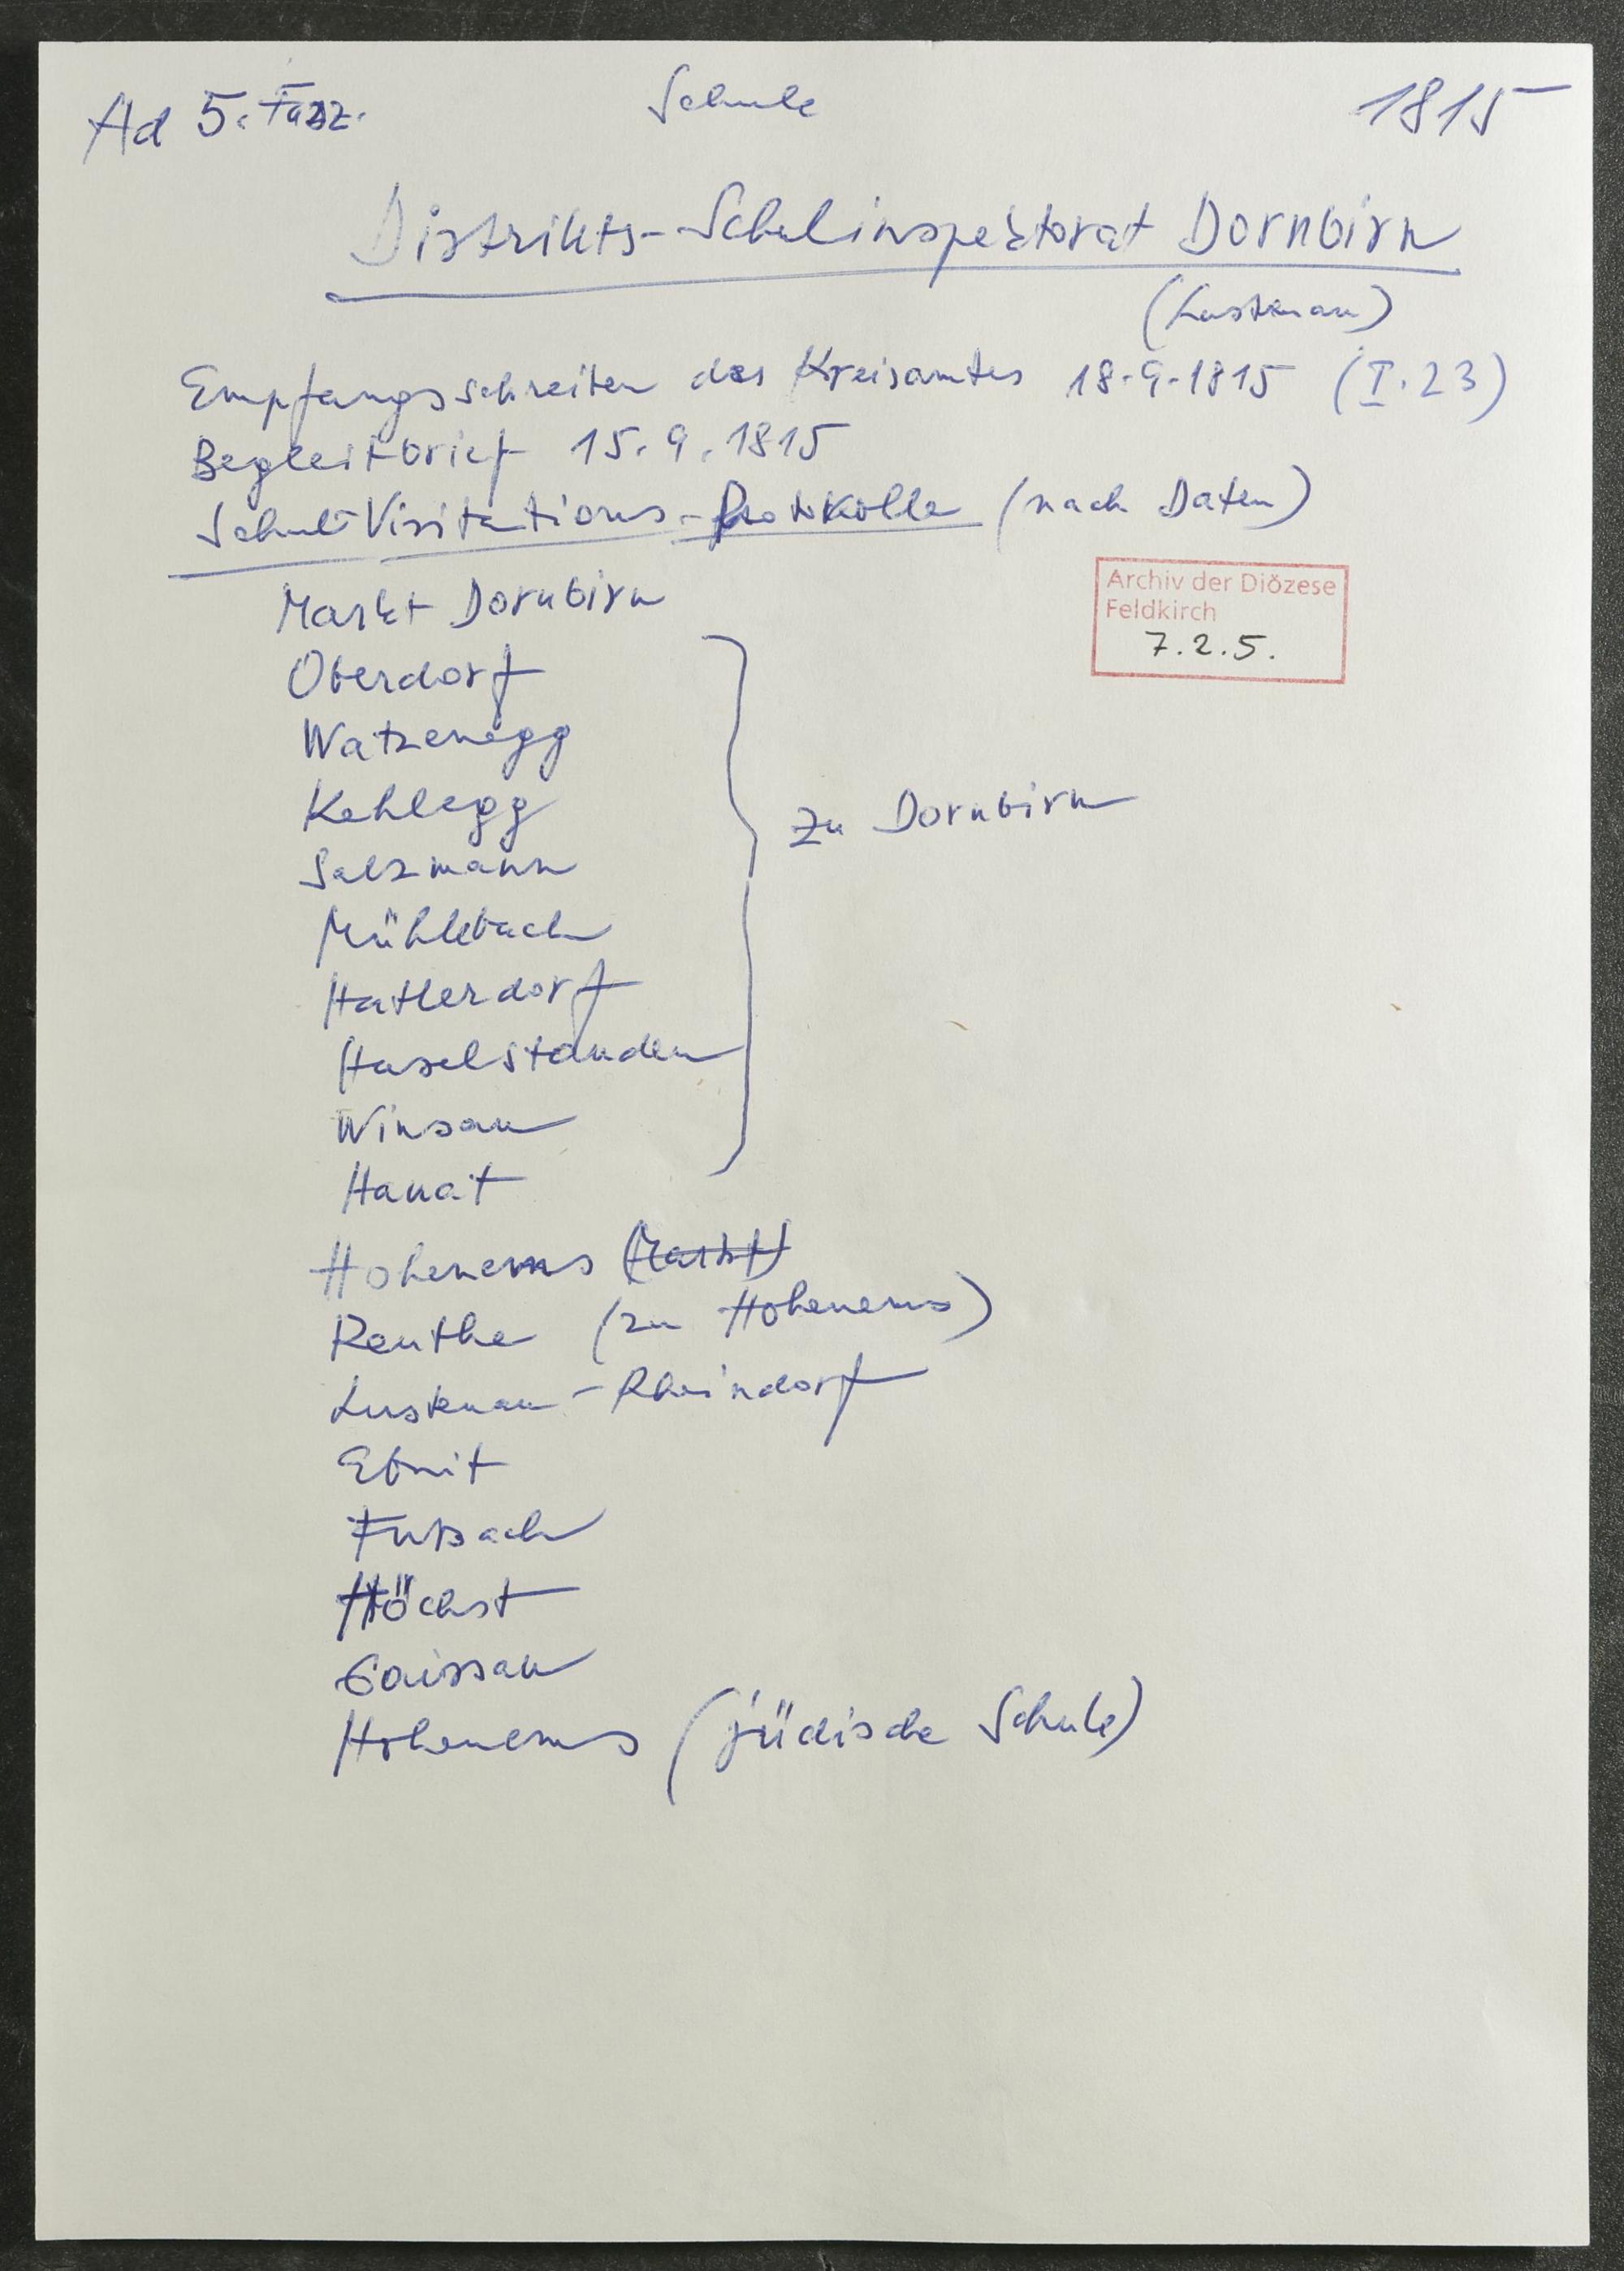 Ad 5. Fasz. Schule 1815
Distrikts-Schulinspektorat Dornbirn
(Lustenau)
Empfangsschreiben des Kreisamtes 18.9.1815 (I.23)
Begleitbrief 15.9.1815
Schul-Visitations-Protokolle (nach Daten)
Archiv der Diözese
Feldkirch
7.2.5.
Markt Dornbirn
Oberdorf
Watzenegg
Kehlegg
zu Dornbirn
Salzmann
Mühlebach
Hatlerdorf
Haselstauden
Winsau
Hanat
Hohenems (Markt)
Reuthe (zu Hohenems)
Lustenau - Rheindorf
Ebnit
Fußach
Höchst
Gaissau
Hohenems (jüdische Schule)